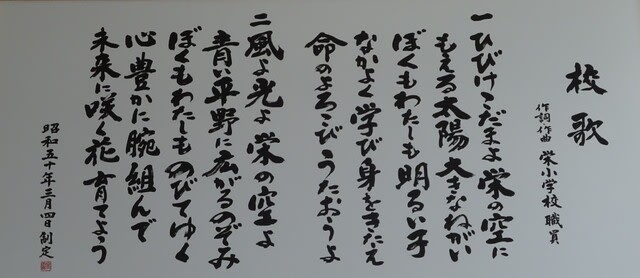 校歌
作詞作曲 栄小学校職員
一 ひびけこだまよ栄の空に
もえる太陽大きなねがい
ぼくもわたしも明るい子
なかよく学び身をきたえ
命のよろこびうたおうよ
二 風よ光よ栄の空よ
青い平野に広がるのぞみ
ぼくもわたしものびてゆく
心豊かに腕組んで
未来に咲く花育てよう
昭和五十年三月四日制定